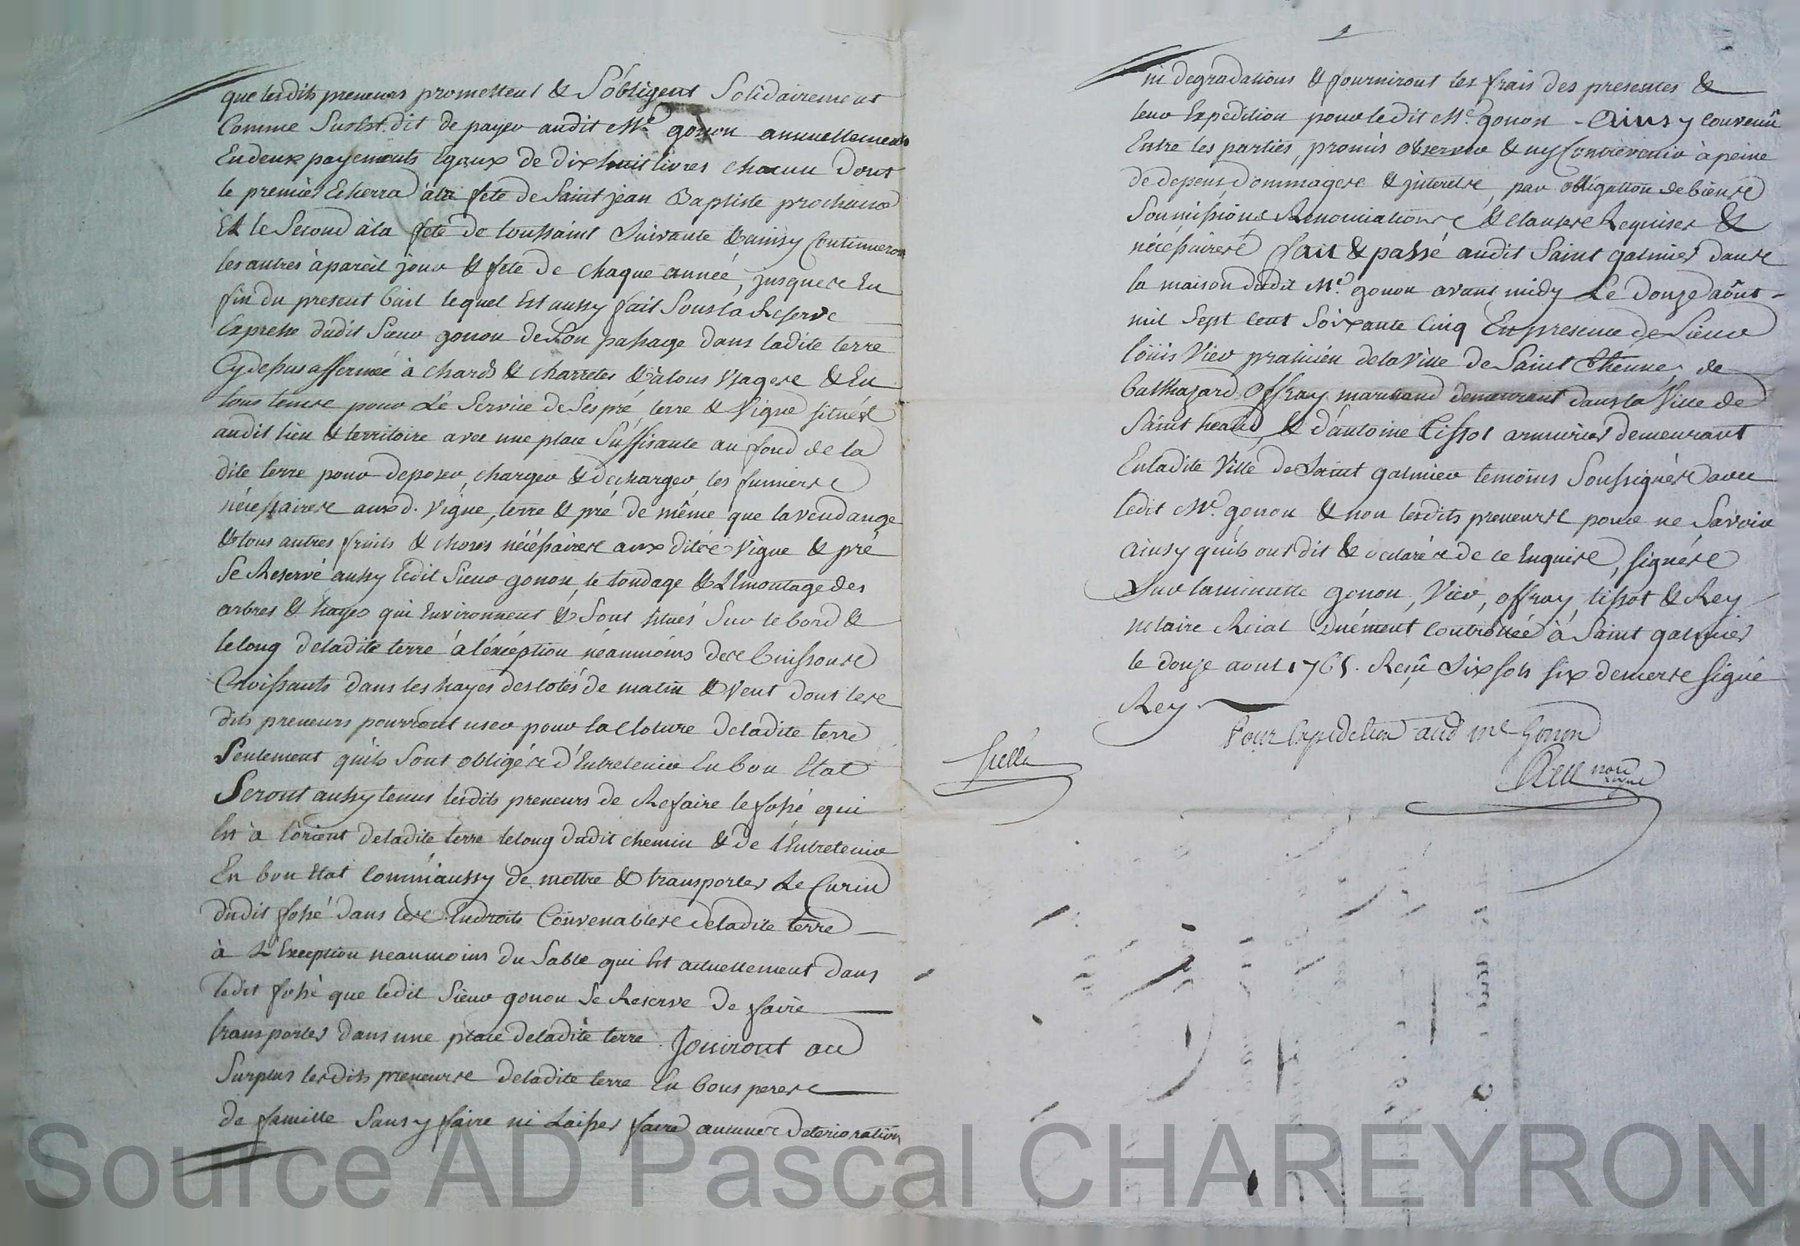 que lesdits preneurs promettent & S'obligent Solidairement
Comme Susest dit de payer audit Me. gonon annuellement
En deux payements Egaux de dix huit livres chacun dont
le premier Echerra à la fete de Saint jean Baptiste prochaine
Et le Second à la fete de toussaint Suivante & ainsy Continueront
les autres à pareil jour & fete de chaque année, jusques En
fin du present bail lequel Est aussy fait Sous la Reserve
Expresse dudit Sieur gonon de Son passage dans ladite terre
Cy dessus affermée à chards & charretes & à tous Usages & En
tous temps pour Le Service de Ses pré terre & Vigne situés
audit lieu & territoire avec une place Suffisante au fond de la
dite terre pour deposer, charger & decharger les fumiers
nécessaires auxd. Vigne, terre & pré de même que la vendange
& tous autres fruits & choses nécéssaires aux dites Vigne & pré
Se Reservé aussy ledit Sieur gonon, le tondage & L'Emontage des
arbres & hayes qui Environnent & Sont situés Sur le bord &
le long deladite terre à l'éxéption néaumoins des buissons
Croissants dans les hayes des cotés de matin & vent dont les
dits preneurs pourront user pour la cloture deladite terre
Seulement qu'ils Sont obligés d'Entretenir En bon Etat
Seront aussy tenus lesdits preneurs de Refaire le fossé qui
Est à l'orient deladite terre le long dudit chemin & de l'Entretenir
En bon Etat Comm'aussy de mettre & transporter Le Curin
dudit fossé dans les Endroits Convenables deladite terre
à L'Exception neaumoins du Sable qui Est actuellement dans
ledit fossé que ledit Sieur gonon Se Reserve de faire
transporter dans une place deladite terre. Jouiront au
Surplus lesdits preneurs deladite terre En bons peres
de famille Sans y faire ni Laisser faire aucunes deterioration
ni degradations & fourniront les frais des presentes &
leur Expedition pour ledit Me. gonon - Ainsy Convenu
Entre les parties, promis observer & ny Contrevenir à peine
de depens dommages & jnterets, par obligation de biens
Soumissions Renonciations & clauses Requises &
nécéssaires fait & passé audit Saint galmier dans
la maison dudit Me. gonon avant midy Le douze août
mil Sept cent Soixante Cinq En presence de Sieur
loüis Vier praticien dela Ville de Saint Etienne, de
balthazard Offray marchand demeurant dans la Ville de
Saint heand & d'antoine tissot armurier demeurant
En ladite Ville de Saint galmier temoins Soussignés avec
ledit Me. gonon & non lesdits preneurs pour ne Savoir
ainsy qu'ils ont dit & declaré de ce Enquis, signés
Sur laminutte gonon, Vier, offray, tissot & Rey
notaire Roial duément Controllée à Saint galmier
le douze aout 1765. Reçu dix sols six deniers signé
Rey
Pour Expedition aud me Gonon